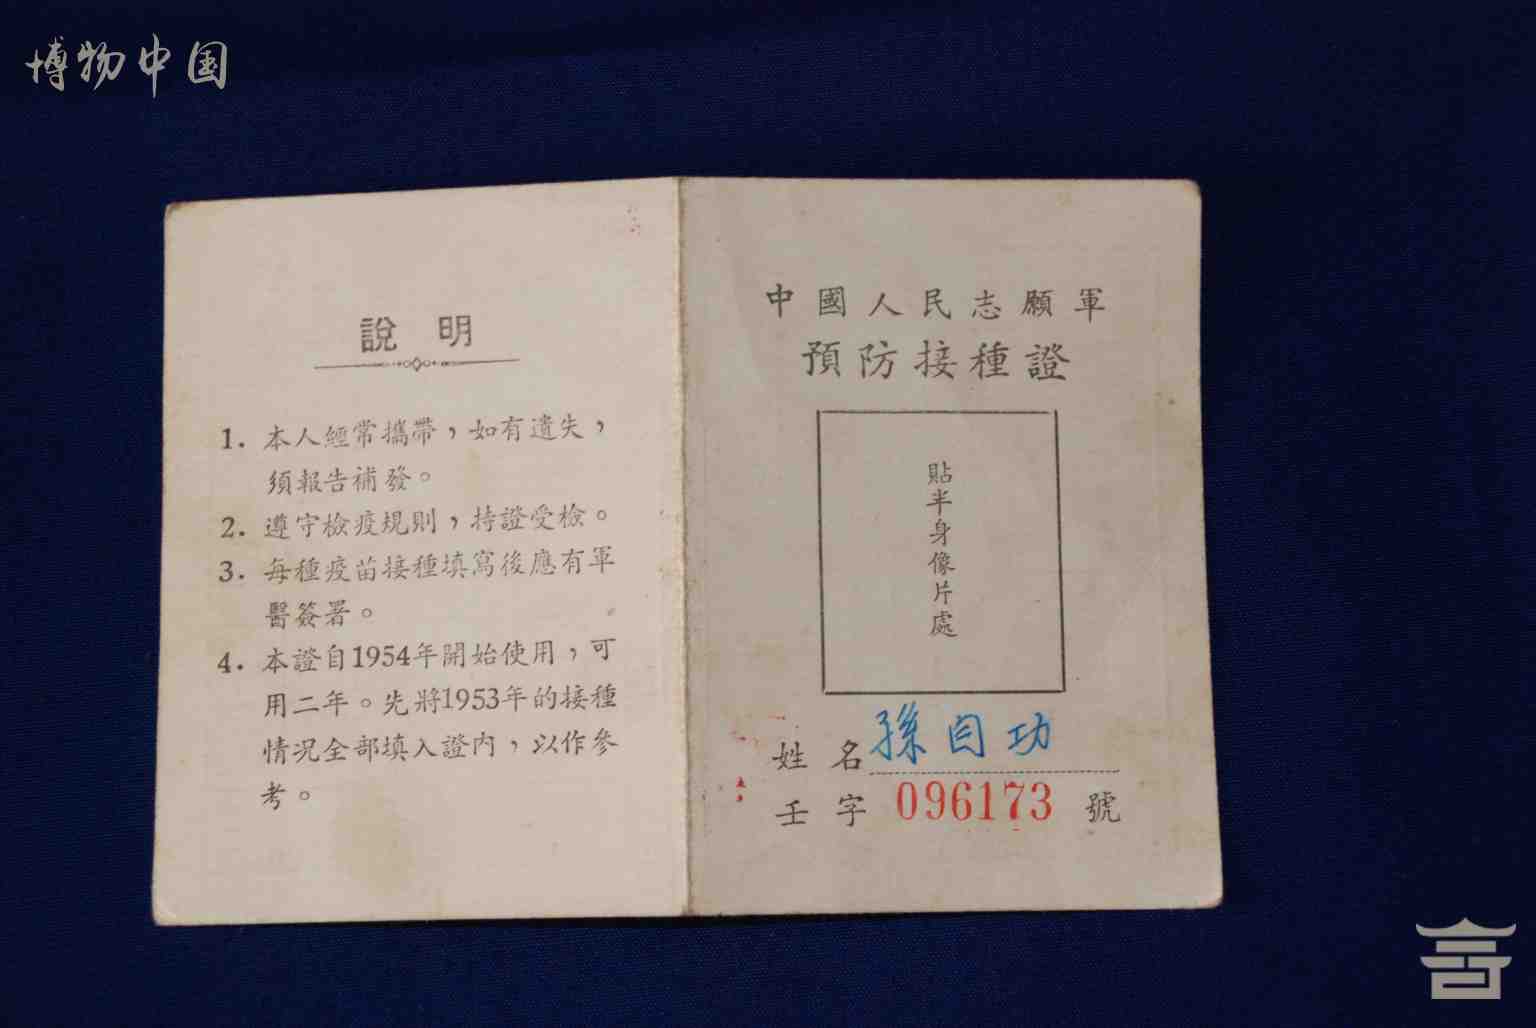 博物中国
說明
1. 本人經常攜帶，如有遺失，
須報告補發。
2. 遵守檢疫規則，持證受檢。
3. 每種疫苗接種填寫後應有軍
醫簽署。
4. 本證自1954年開始使用，可
用二年。先將1953年的接種
情况全部填入證內，以作參
考。
中國人民志願軍
預防接種證
貼半身像片處
姓名 孫自功
壬字 096173 號